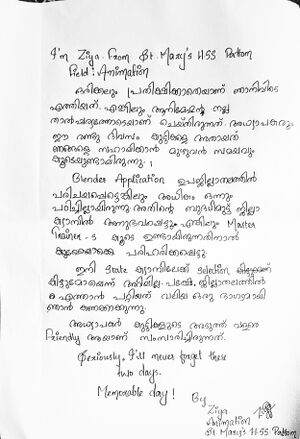 I'm Ziya From St. Mary's HSS Pattom
Field : Animation
ഒരിക്കലും പ്രതീക്ഷിക്കാതെയാണ് ഞാനിവിടെ
എത്തിയത്. എങ്കിലും ആനിമേഷന്റെ നല്ല
താൽപര്യത്തോടെയാണ് ചെയ്തിരുന്നത്. അധ്യാപകരും
ഈ രണ്ടു ദിവസം കുട്ടികളെ അതായത്
ഞങ്ങളെ സഹായിക്കാൻ മുഴുവൻ സമയവും
കൂടെയുണ്ടായിരുന്നു.
Blender Application ഉപജില്ലാതലത്തിൽ
പരിചയപ്പെട്ടെങ്കിലും അധികം ഒന്നും
പഠിച്ചില്ലായിരുന്നു. അതിന്റെ ബുദ്ധിമുട്ട് ജില്ലാ
ക്യാമ്പിൽ അനുഭവപ്പെട്ടു. എങ്കിലും Master
Trainer-s കൂടെ ഉണ്ടായിരുന്നതിനാൽ
പരിഹരിക്കപ്പെട്ടു.
ഇനി State ക്യാമ്പിലേക്ക് Selection
കിട്ടുമോയെന്ന് അറിയില്ല. പക്ഷേ, ജില്ലാതലത്തിൽ
എത്താൻ പറ്റിയത് വലിയ ഒരു ഭാഗ്യമായി
ഞാൻ കണക്കാക്കുന്നു.
അധ്യാപകർ കുട്ടികളുടെ അടുത്ത് വളരെ
Friendly ആയാണ് സംസാരിച്ചിരുന്നത്.
Seriously, I'll never forget these
two days.
Memorable day!
By
Ziya
Animation
St. Mary's HSS Pattom